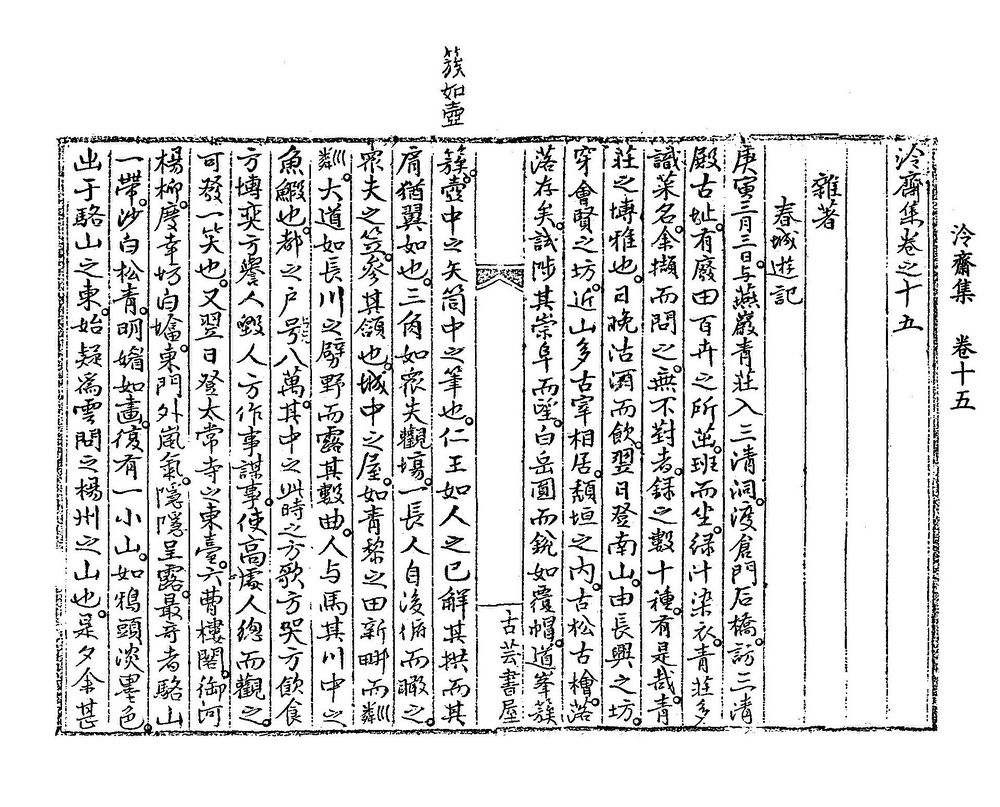 泠齋集　卷十五
泠齋集卷之十五
雜著
春城遊記
庚寅三月三日与燕巖青莊入三清洞。渡倉門石橋。訪三清
殿古址。有廢田百卉之所茁。班而坐。綠汁染衣。青莊多
識菜名。余擷而問之。無不對者。錄之數十種。有是哉。青
莊之博雅也。日晚沽酒而飲。翌日登南山。由長興之坊。
穿會賢之坊。近山多古宰相居。頹垣之內。古松古檜。落
落存矣。試陟其崇阜而望。白岳圓而銳如覆帽。道峯簇
古芸書屋
簇如壺
簇。壺中之矢筒中之筆也。仁王如人之已解其拱而其
肩猶翼如也。三角如眾夫觀場。一長人自後俯而瞰之。
眾夫之笠。參其頷也。城中之屋。如青黎之田新畊而粼
粼。大道如長川之劈野而露其數曲。人与馬其川中之
魚鰕也。都之戶号八萬。其中之此時之方歌方哭方飲食
方博奕方譽人毀人方作事謀事。使高處人總而觀之。
可發一笑也。又翌日登太常寺之東臺。六曹樓閣。御河
楊柳。慶幸坊白塔。東門外嵐氣。隱隱呈露。最奇者駱山
一帶。沙白松青。明媚如畫。復有一小山。如鴉頭淡墨色。
出于駱山之東。始疑爲雲問之楊州之山也。是夕余甚